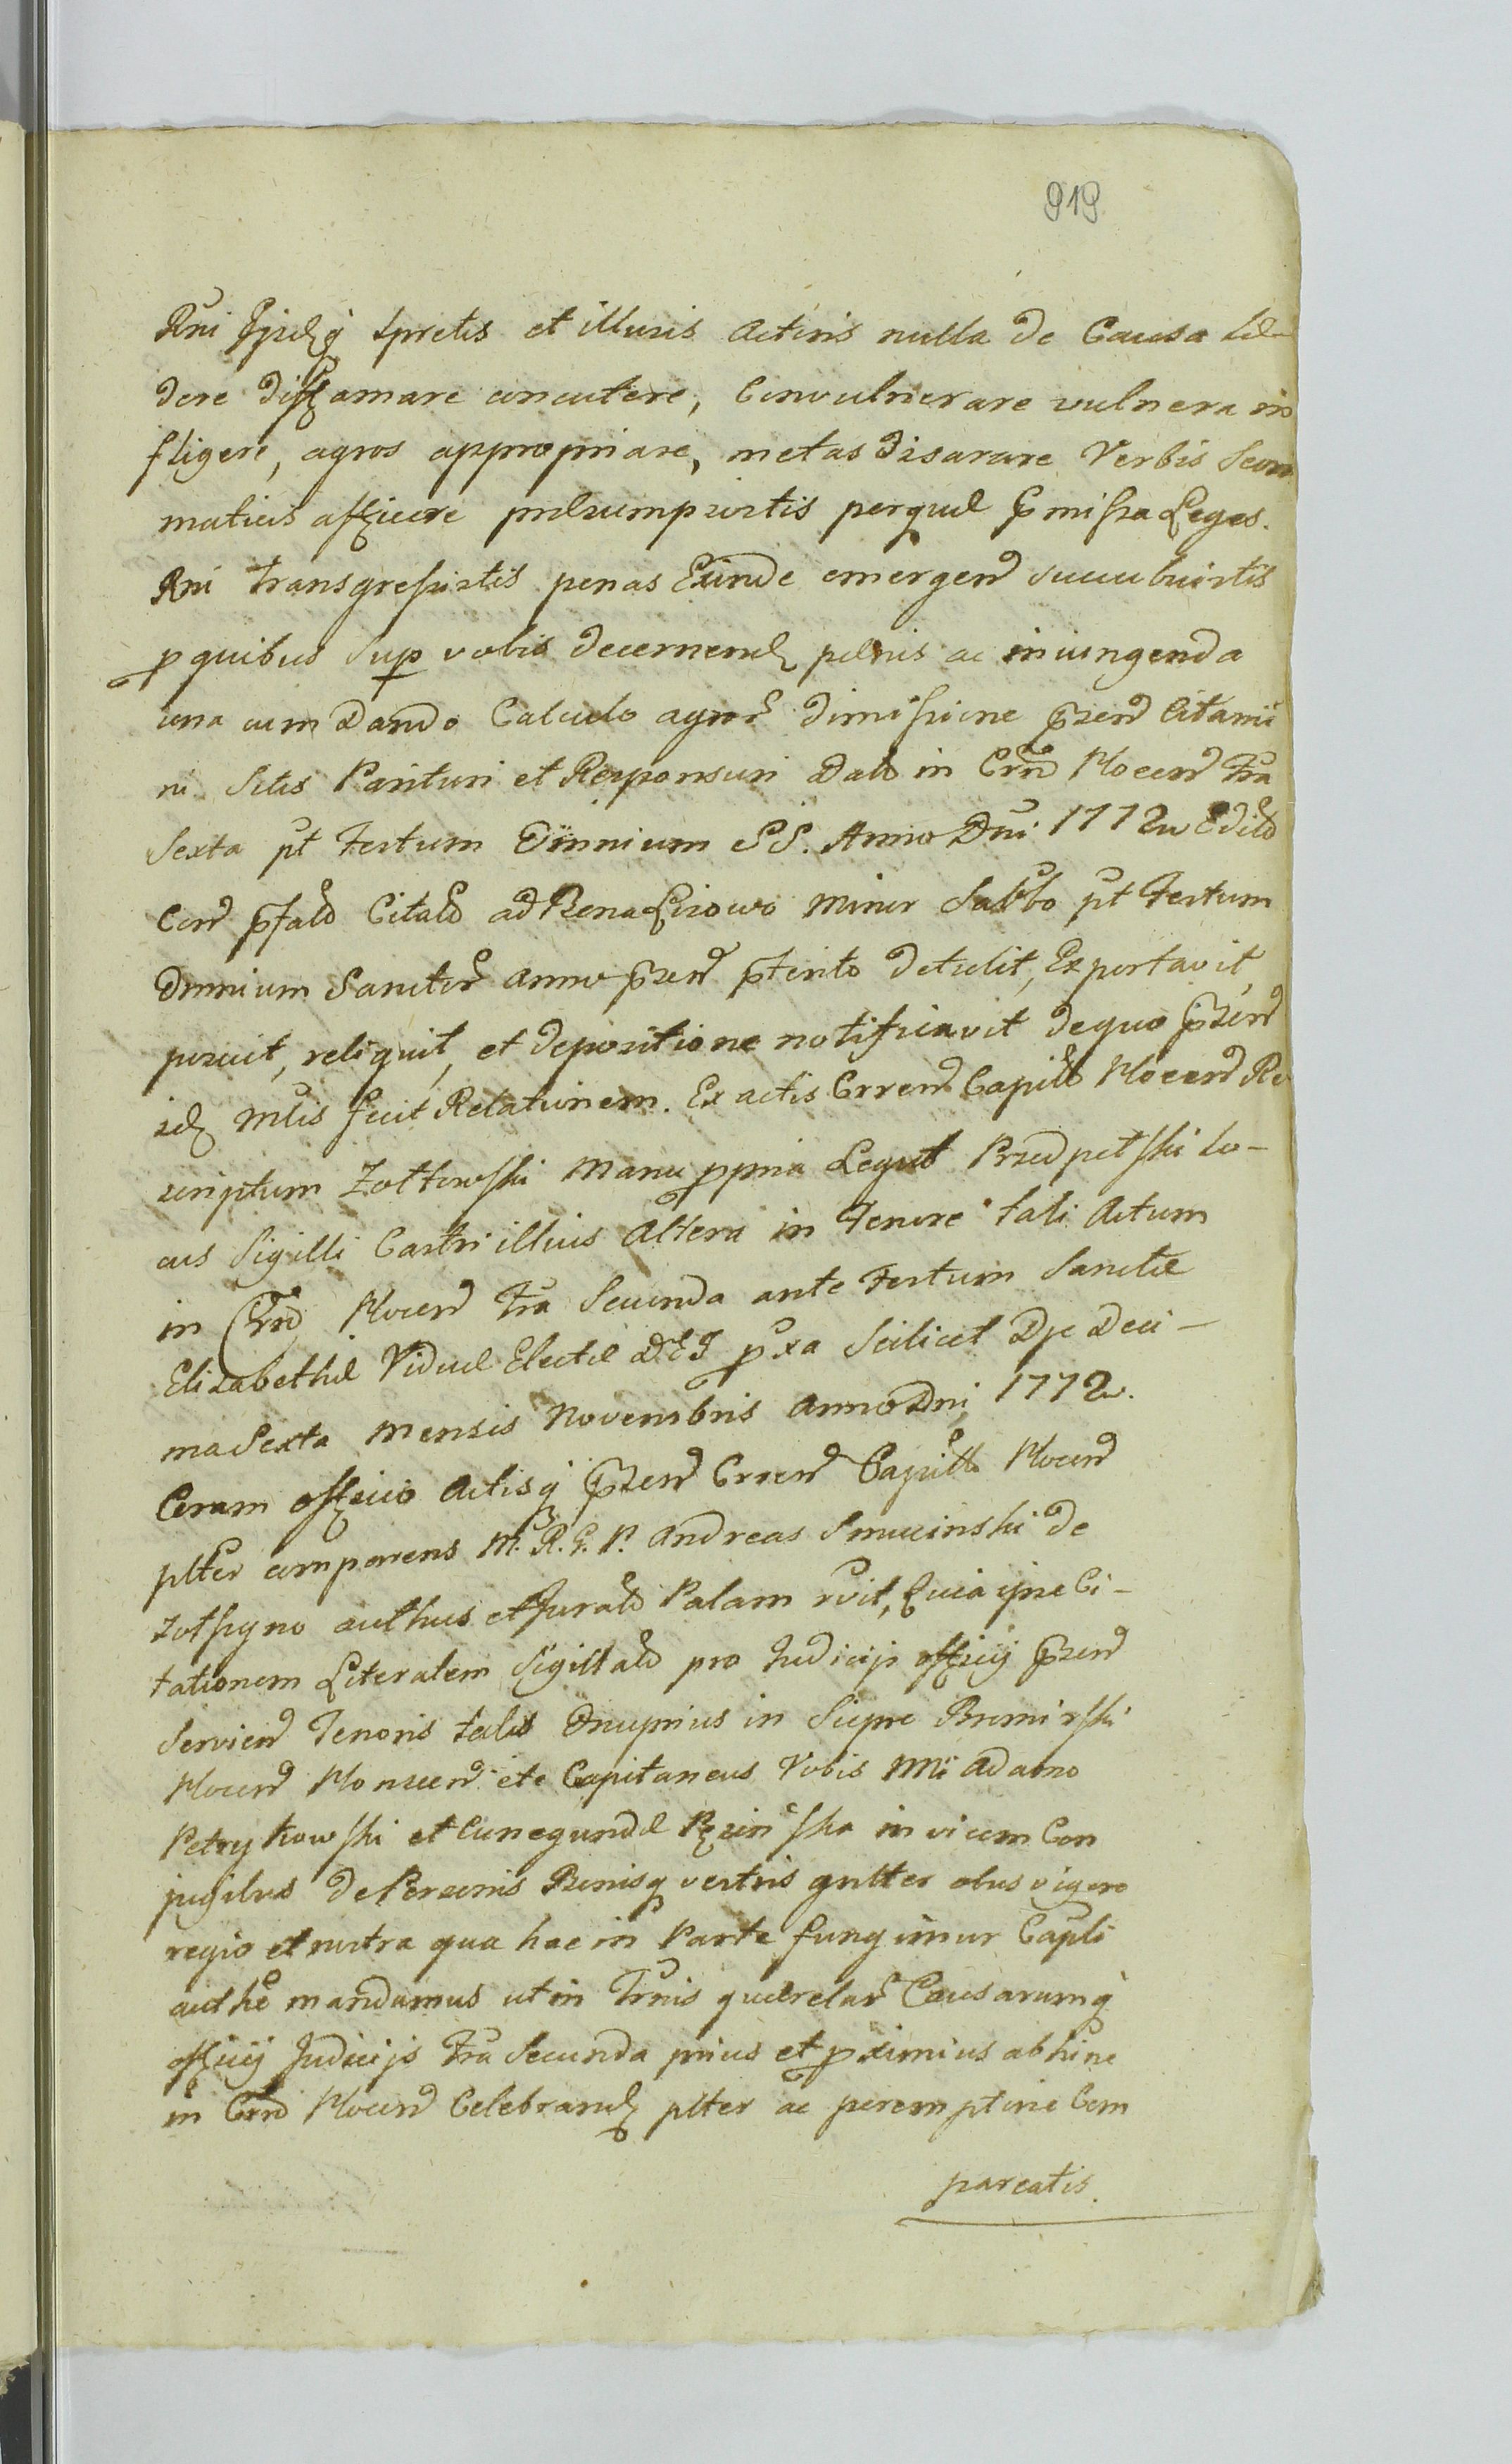 919
Rni Ejusdq spretis et illusis Actoris nulla de Causa læ-
dere diffamare concutere, Convulnerare vulnera in
fligere, agros appropriare, metas disarare Verbis Scom
maticis afficere præsumpsistis perquæ Pmissa Leges.
Rni transgressistis penas Exinde emergend succubuistis
p quibus Sup vobis decernend penis ac iniungenda
una cum Dando Calculo agror dimissione pnd Citami
ni Sitis Parituri et Responsuri Dato in Crnd Plocend Fra
Sexta pt Festum Omnium SS. Anno Dni 1772 Edito
Cond pfato Citato ad Bona Lisowo Minor Sabbo pt Festum
Omnium Sanctor anno pnd pterito detulit, Exportavit,
posuit, reliquit, et depositione notificavit de quo pnd
id Mlis fecit Relationem. Ex actis Crrend Capitlb Plocend Re
scriptum Zółtowski Manu ppria Legit Przedpełski Lo-
cus Sigilli Castri illius Altera in Tenore tali Actum
in Crnd Plocend Fra Secunda ante Festum Sanctæ
Elizabethæ Viduæ Electæ D.E.I pxa Scilicet Die Deci-
ma Sexta Mensis Novembris Anno Dni 1772.
Coram officio Actisq pnd Crrend Capitlb Plocend
plter comparens M. R. G. P. Andreas Smucinski de
authus et Jurato Palam rvit, Quia ipse Ci-
tationem Literalem Sigillato pro Judicijs officij pnd
Serviend Tenoris talis Onuprius in Siepre Bromirski
Plocend Plonscend etc Capitaneus Vobis Mii Adamo
Petrykowski et Cunegundæ in vicem Con
jugibus de Personis Bonisq vestris gnlter obus vigore
regio et nostra qua hac in Parte fungimur Capli
authe mandamus ut in Trnis querelar Causarumq
officij Judicijs Fra Secunda prius et pximius abhinc
in Crnd Plocend Celebrand plter ac peremptorie Com
pareatis.